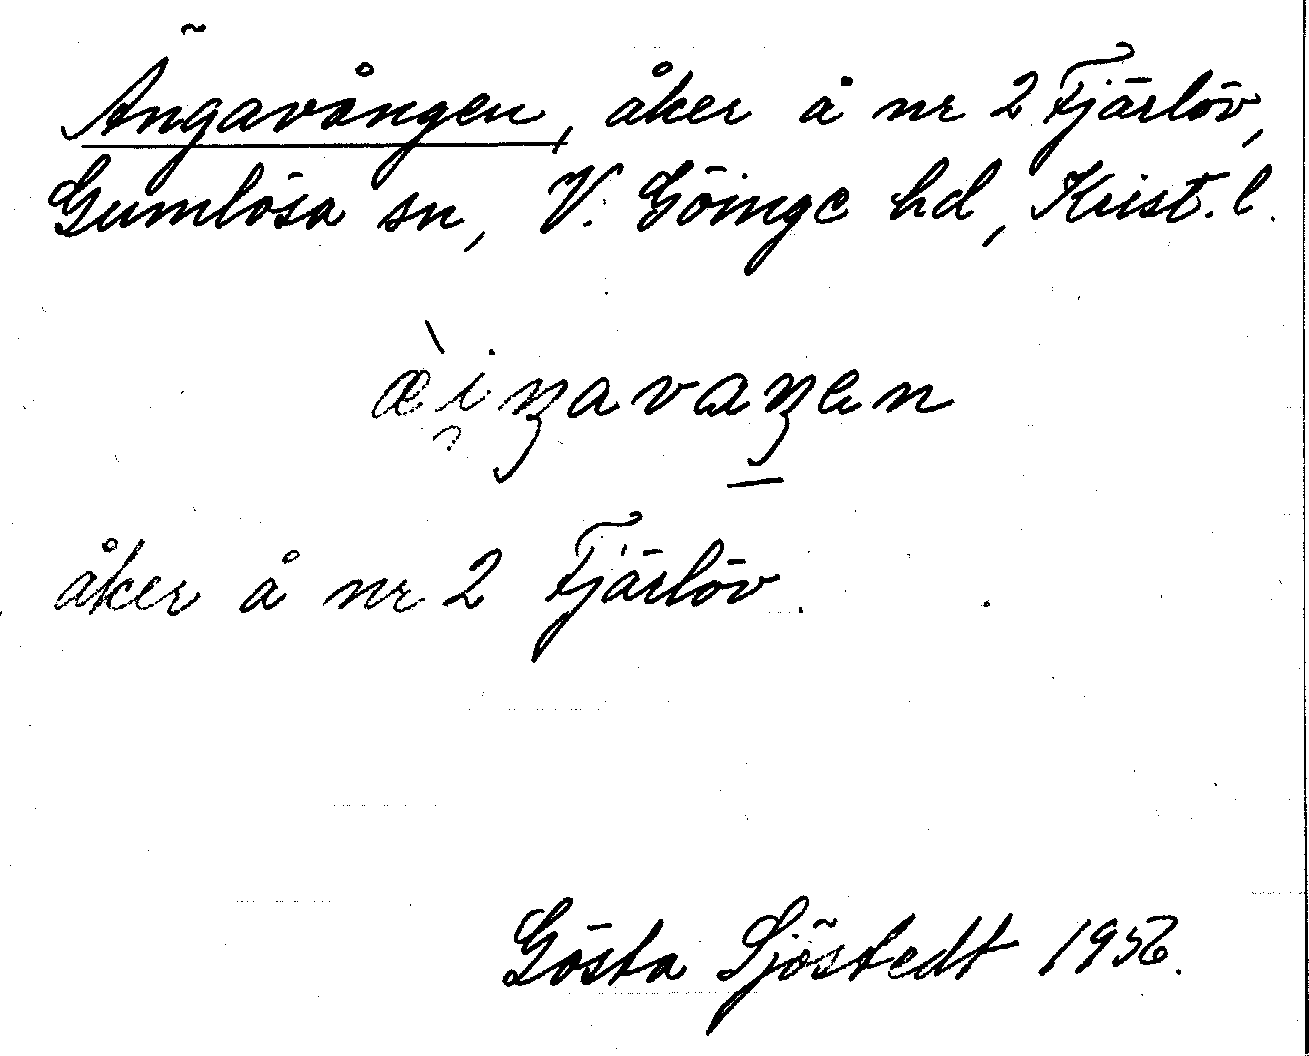 Ängavången, åker å nr 2 Fjärlöv,
Gumlösa sn, V. Göinge hd, Krist. l.
æ̀i̯ŋavaŋen
åker å nr 2 Fjärlöv.
Gösta Sjöstedt 1956.